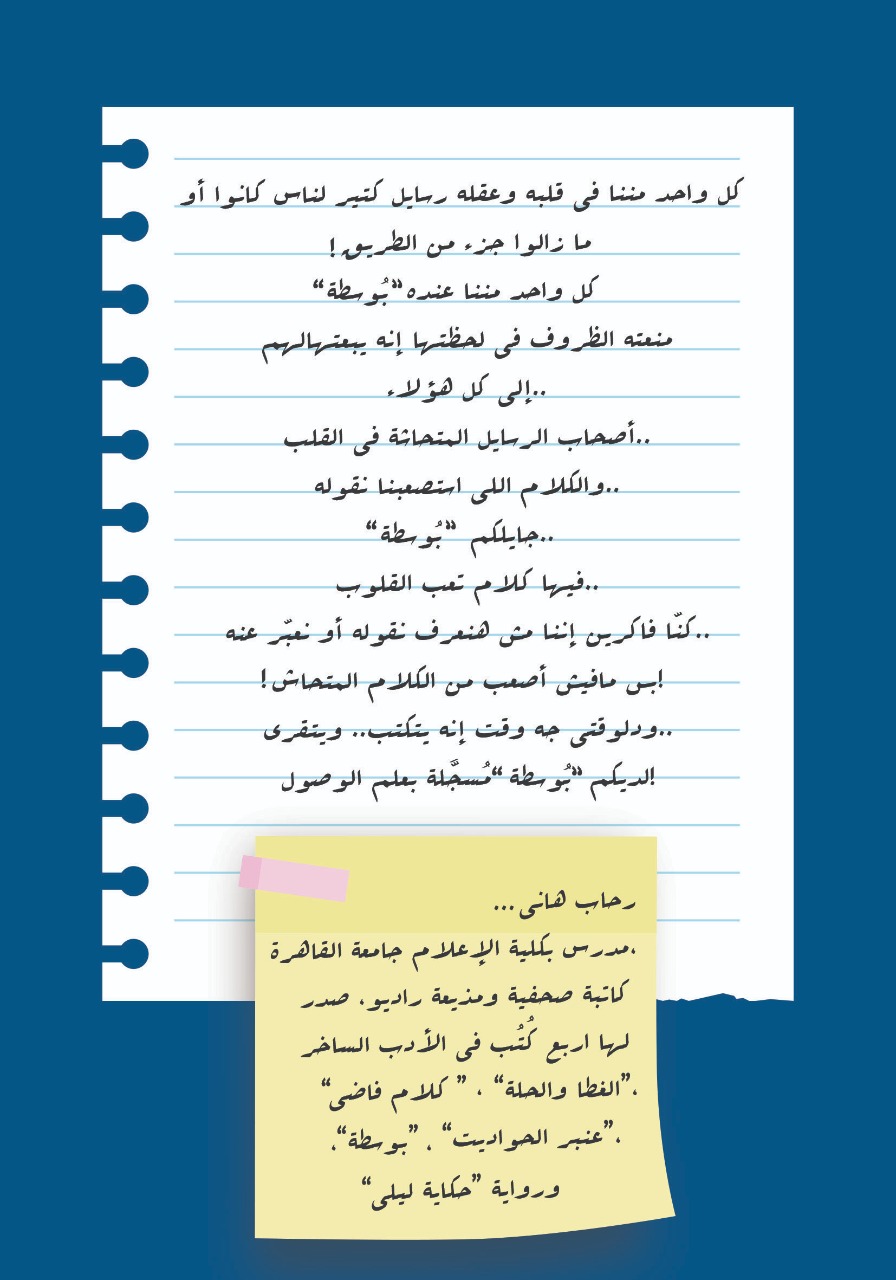 كل واحد مننا فى قلبه وعقله رسايل كتير لناس كانوا أو
ما زالوا جزء من الطريق!
كل واحد مننا عنده "بُوسطة"
منعته الظروف فى لحظتها إنه يبعتهالهم
..إلى كل هؤلاء
..أصحاب الرسايل المتحاشة فى القلب
..والكلام اللى استصعبنا نقوله
..جايلكم "بُوسطة"
..فيها كلام تعب القلوب
..كنّا فاكرين إننا مش هنعرف نقوله أو نعبّر عنه
!بس مافيش أصعب من الكلام المتحاش!
..ودلوقتى جه وقت إنه يتكتب.. ويتقرى
!لديكم "بُوسطة" مُسجَّلة بعلم الوصول
رحاب هانى...
،مدرس بكلية الإعلام جامعة القاهرة
كاتبة صحفية ومذيعة راديو، صدر
لها اربع كُتُب فى الأدب الساخر
،"الغطا والحلة"، "كلام فاضى"
،"عنبر الحواديت"، "بوسطة"،
ورواية "حكاية ليلى"